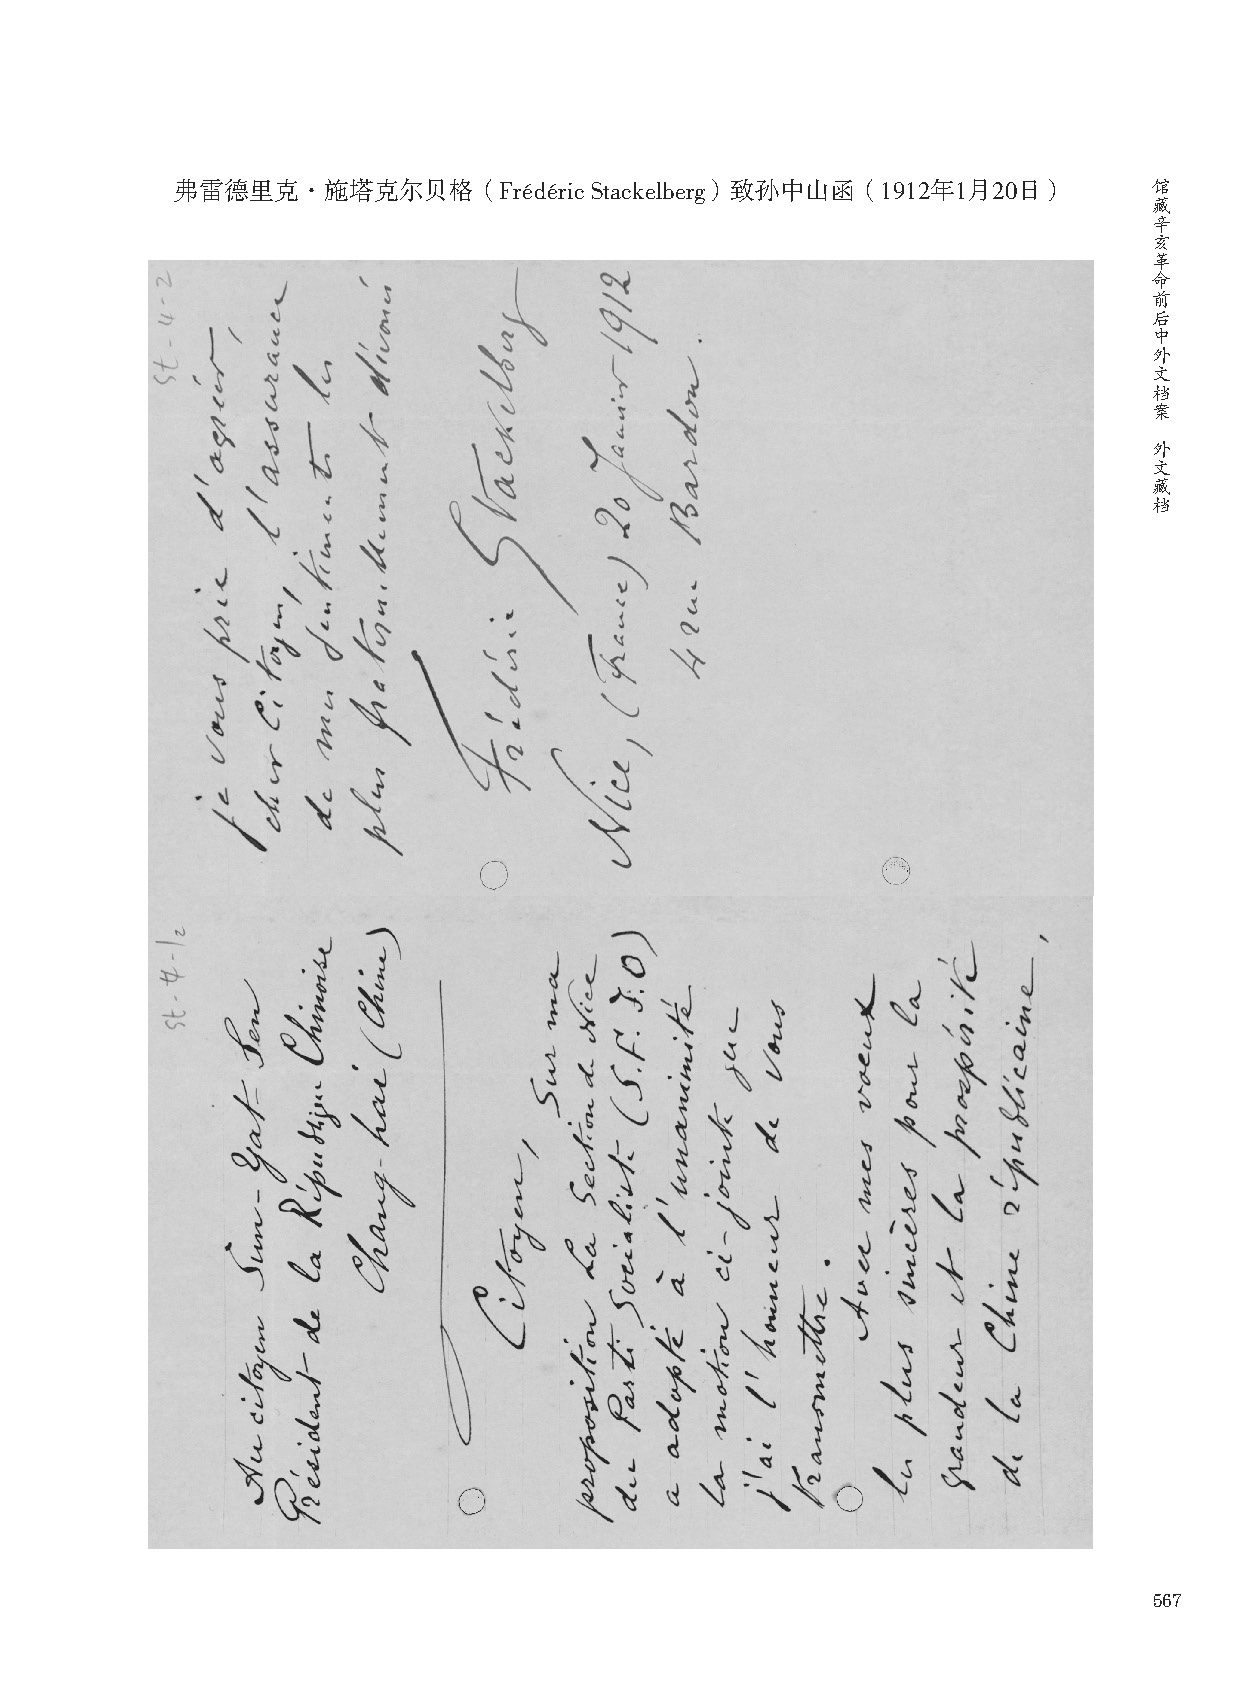 弗雷德里克·施塔克尔贝格（Frédéric Stackelberg）致孙中山函（1912年1月20日）
馆藏辛亥革命前后中外文档案 外文藏档
St-4-1/2
Au citoyen Sun-Yat-Sen
Président de la République Chinoise
Chang-hai (Chine)
Citoyen,
Sur ma
proposition La Section de Nice
du Parti Socialiste (S.F.I.O)
a adopté à l'unanimité
la motion ci-jointe que
j'ai l'honneur de vous
transmettre.
Avec mes voeux
les plus sincères pour la
grandeur et la prospérité
de la Chine républicaine,
St-4-2
je vous prie d'agréer,
cher Citoyen, l'assurance
de mes sentiments les
plus fraternellement dévoués
Frédéric Stackelberg
Nice, (France) 20 Janvier 1912
4 rue Bardon.
567